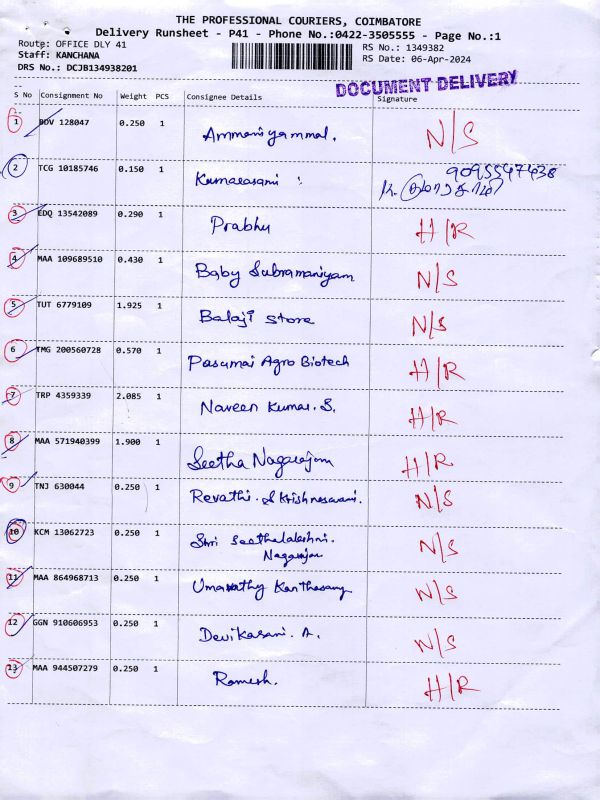 THE PROFESSIONAL COURIERS, COIMBATORE
Delivery Runsheet - P41 - Phone No.:0422-3505555 - Page No.:1
Route: OFFICE DLY 41
RS No.: 1349382
Staff: KANCHANA
RS Date: 06-Apr-2024
DRS No.: DCJB134938201
DOCUMENT DELIVERY
S No Consignment No Weight PCS Consignee Details Signature
1 128047 0.250 1 Ammaniyammal. N/S
2 TCG 10185746 0.150 1 Kumarasami : 9095547438
3 EDQ 13542089 0.290 1 Prabhu H/R
4 MAA 109689510 0.430 1 Baby Subramaniyam N/S
5 TUT 6779109 1.925 1 Balaji Store N/S
6 TMG 200560728 0.570 1 Pasumai Agro Biotech H/R
7 TRP 4359339 2.085 1 Naveen Kumar. S. H/R
8 MAA 571940399 1.900 1 Seetha Nagarajan H/R
9 TNJ 630044 0.250 1 Revathi. S Krishnaswami. N/S
10 KCM 13062723 0.250 1 Shri Seethalakshmi. N/S
Nagarajan
11 MAA 864968713 0.250 1 N/S
12 GGN 910606953 0.250 1 A. N/S
13 MAA 944507279 0.250 1 Ramesh. H/R